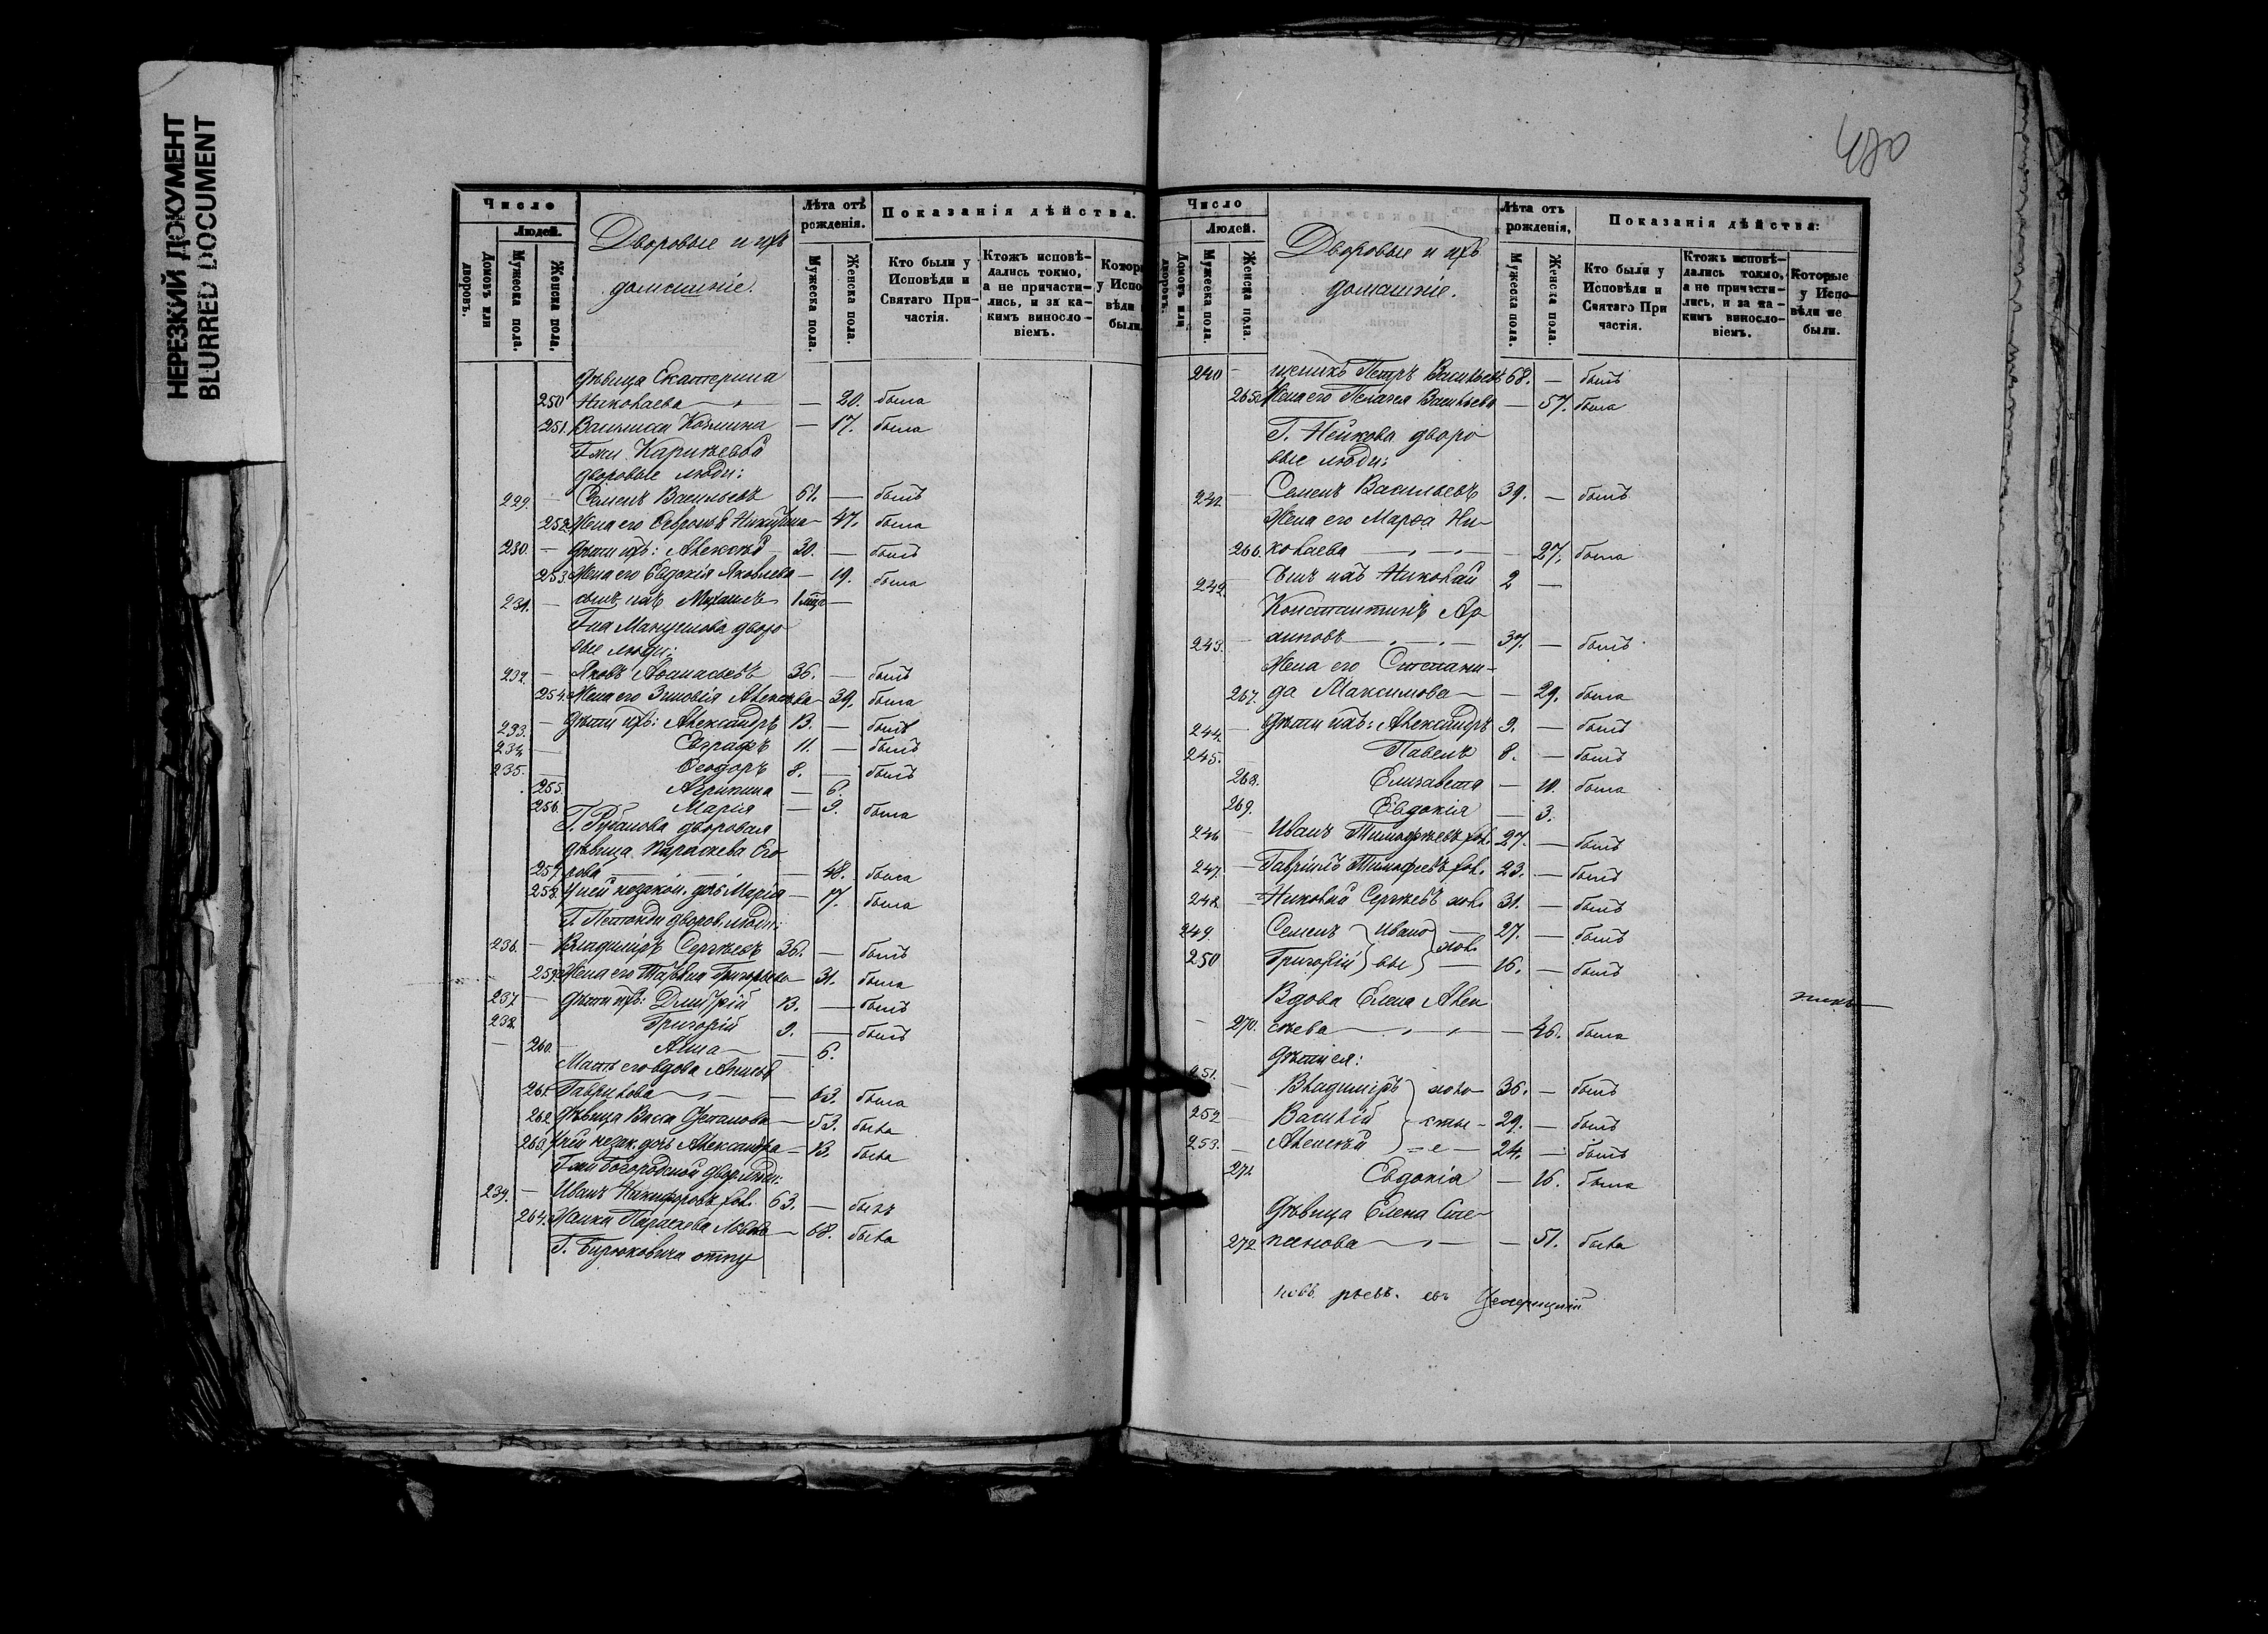 НЕРЕЗКИЙ ДОКУМЕНТ
BLURRED DOCUMENT
Число
Людей.
Домовъ или дворовъ.
Мужеска пола.
Женска пола.
Дворовые и ихъ
домашніе.
Лѣта отъ рожденія.
Мужеска пола.
Женска пола.
Показанія дѣйства.
Кто были у Исповѣди и Святаго Причастія.
Ктожъ исповѣдались токмо, а не причастились, и за какимъ винословіемъ.
Котор
у Испо
вѣди
были
дѣвица Екатерина
250 Николаева — 20. была
251. Василиса Козмина — 17. была
Гжи Карпѣевой
дворовые люди:
229. — Семенъ Васильевъ 61. — былъ
252. Жена его Февронія Никитина — 47. была
230. — Дѣти ихъ: Алексѣй 30. — былъ
253. Жена его Евдокія Яковлева — 19. была
231. — сынъ ихъ Михаилъ 1 мца —
Гна Мануилова дворо
вые люди:
232. — Яковъ Аѳанасьевъ 36. — былъ
254. Жена его Зиновія Алексѣева 39. была
233. — Дѣти ихъ: Александръ 13. — былъ
234. — Евграфъ 11. — былъ
235. Ѳеодоръ 8. — былъ
255. Агрипина — 6.
256. Марія — 9. была
Г. Рубанова дворовая
дѣвица Параскева Его
257. рова — 48. была
258. У ней незакон. дочь Марія — 17. была
Г. дворов. люди:
236. — Владиміръ Сергѣевъ 36. — былъ
259. Жена его Татьяна Григорьева 31. была
237. — Дѣти ихъ: Димитрій 13. — былъ
238. Григорій 9. — былъ
— 260. Анна — 6.
Мать его вдова
261. Гаврилова — 63. была
262. Дѣвица Васса Степанова — 53. была
263. У ней незак. дочь Александра — 13. была
Гжи Богородской двор. люди:
239. — Иванъ Никифоровъ хол. 63. — былъ
264. Жилка Параскева — 68. была
Г. Бирюковича отпу
480
Число
Людей.
Домовъ или дворовъ.
Мужеска пола.
Женска пола.
Дворовые и ихъ
домашніе.
Лѣта отъ рожденія,
Мужеска пола.
Женска пола.
Показанія дѣйства:
Кто были у Исповѣди и Святаго При частія.
Ктожъ исповѣдались токмо, а не причастились, и за какимъ винословіемъ.
Которые у Исповѣди не были.
240 — щеникъ Петръ Васильевъ 68. — былъ
265. Жена его Пелагея Васильева — 57. была
Г. Нейкова дворо
вые люди:
Семенъ Васильевъ 39. — былъ
Жена его Марѳа Ни-
266. колаева — 27. была
242. Сынъ ихъ Николай 2 —
Константинъ Ар
243. — хиповъ — 37. — былъ
Жена его Степани-
267. да Максимова — 29. была
244. — Дѣти ихъ: Александръ 9. — былъ
245. Павелъ 8. — былъ
268. Елизавета — 10. была
269. Евдокія — 3.
246 — Иванъ Тимофѣевъ хол. 27. — былъ
247. — Гавріилъ Тимофеевъ хол. 23. — былъ
248. — Николай Сергѣевъ хол. 31. — былъ
249. Семенъ Ивано 27. — былъ
250 Григорій вы хол. 16. — былъ
Вдова Елена Алек
— 270. сѣева — 46. была
Дѣти ея:
251. — Владиміръ холо 36. — былъ
252 — Василій стые 29. — былъ
253. — Алексѣй 24. — былъ
271. Евдокія — 16. была
Дѣвица Елена Сте-
272 панова — 51. была